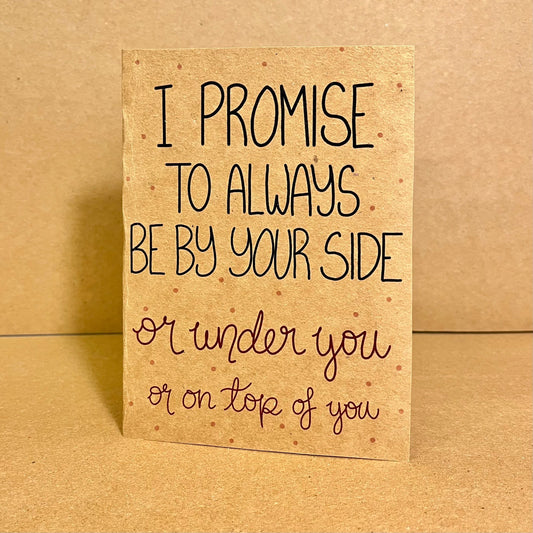 I PROMISE
TO ALWAYS
BE BY YOUR SIDE
or under you
or on top of you